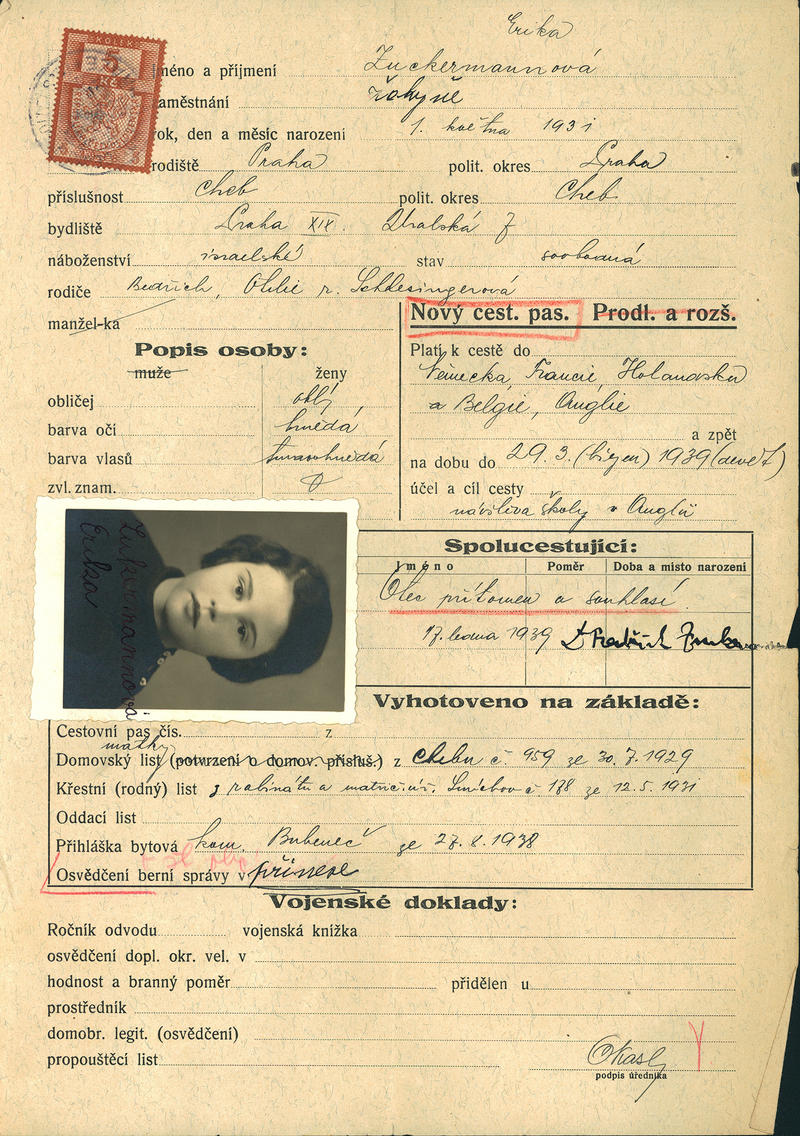 Erika
méno a příjmení Zuckermannová
aměstnání žákyně
rok, den a měsíc narození 1. května 1931
rodiště Praha polit. okres Praha
příslušnost Cheb polit. okres Cheb
bydliště Praha XIX. Uralská 7
náboženství israelské stav svobodná
rodiče Bedřich, Otilie r. Schlesingerová
manžel-ka
Nový cest. pas. Prodl. a rozš.
Popis osoby:
muže ženy
obličej oblý
barva očí hnědá
barva vlasů tmavohnědá
zvl. znam.
Platí k cestě do
Německa, Francie, Holandska
a Belgie, Anglie
a zpět
na dobu do 29. 3. (březen) 1939 (devět)
účel a cíl cesty
návštěva školy v Anglii
Zukermannová
Erika
Spolucestující:
Jméno Poměr Doba a misto narozeni
Otec přítomen a souhlasí.
17. ledna 1939
Vyhotoveno na základě:
Cestovní pas čís. z
matky
Domovský list (potvrzení o domov. přísluš.) z Chebu č. 959 ze 30. 7. 1929
Křestní (rodný) list z rabinátu a matrič. úř. Smíchov č 178 ze 12. 5. 1931
Oddací list
Přihláška bytová kom. Bubeneč ze 27. 8. 1938
Osvědčení berní správy v přinese
Vojenské doklady:
Ročník odvodu vojenská knížka
osvědčení dopl. okr. vel. v
hodnost a branný poměr přidělen u
prostředník
domobr. legit. (osvědčení)
propouštěcí list
podpis úředníka